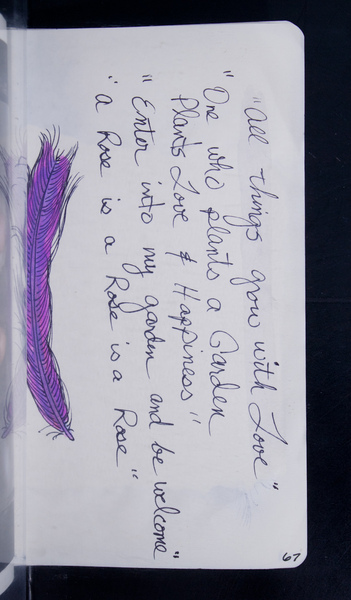 "All things grow with Love"
"One who plants a Garden
Plants Love & Happiness"
"Enter into my garden and be welcome"
"a Rose is a Rose is a Rose"
67